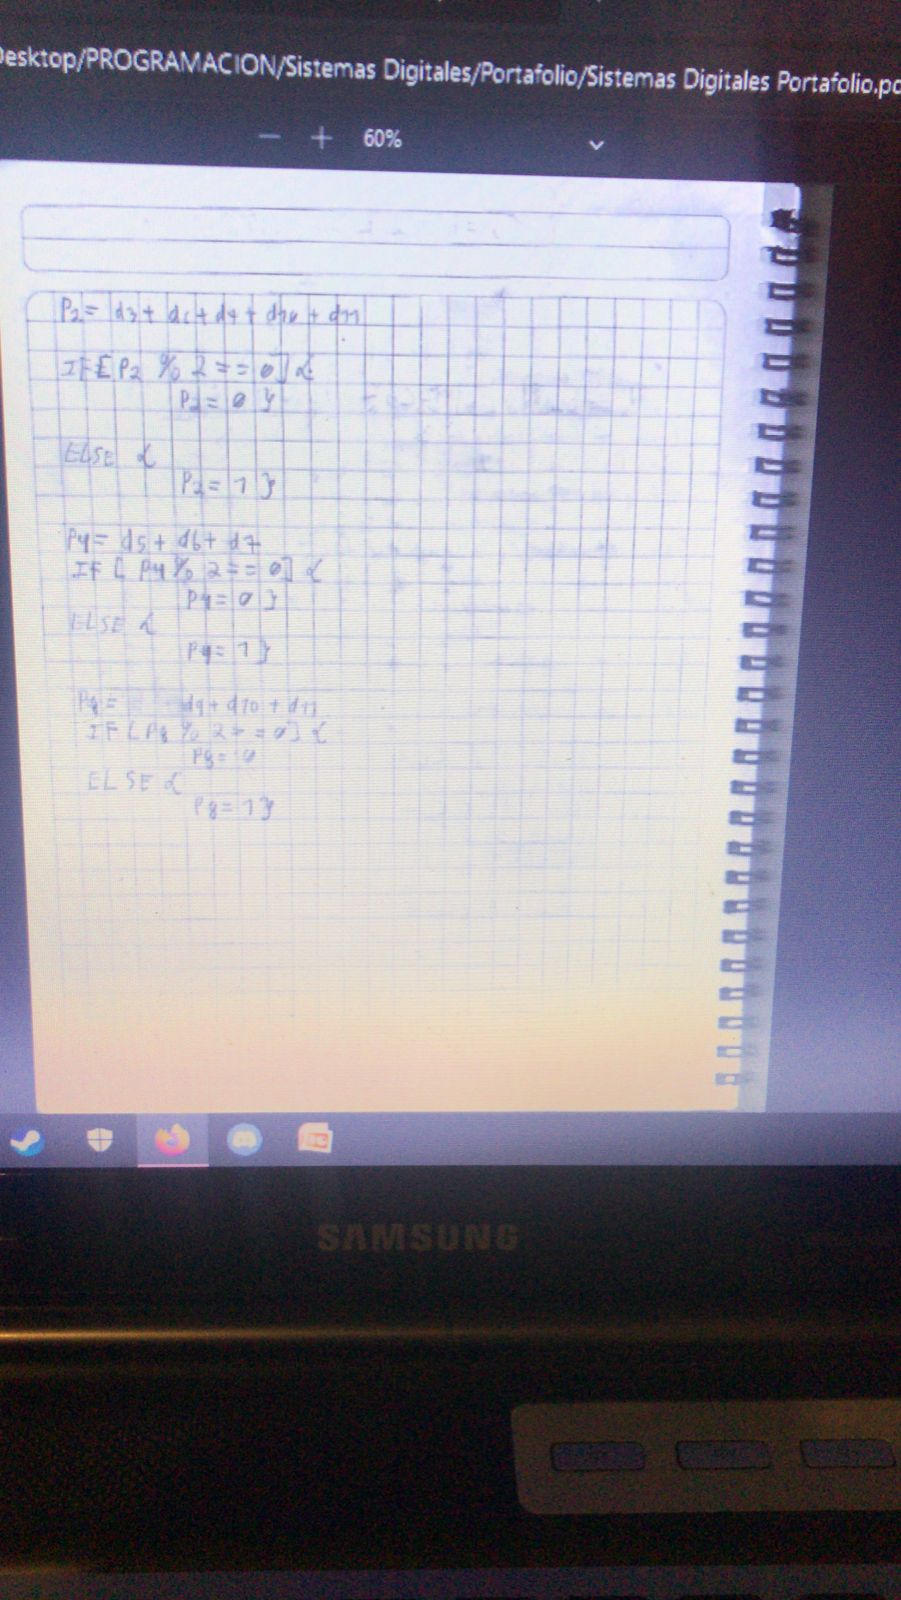 Desktop/PROGRAMACION/Sistemas Digitales/Portafolio/Sistemas Digitales Portafolio.pd
− + 60%
P2= d3+ d6+ d7+ d10 + d11
IF[P2 % 2 == 0] {
P2= 0 }
ELSE {
P2= 1 }
P4= d5+ d6+ d7
IF [ P4 % 2 == 0] {
P4= 0 }
ELSE {
P4= 1 }
P8= d9+ d10 + d11
IF [P8 % 2 == 0] {
P8= 0
ELSE {
P8= 1 }
SAMSUNG